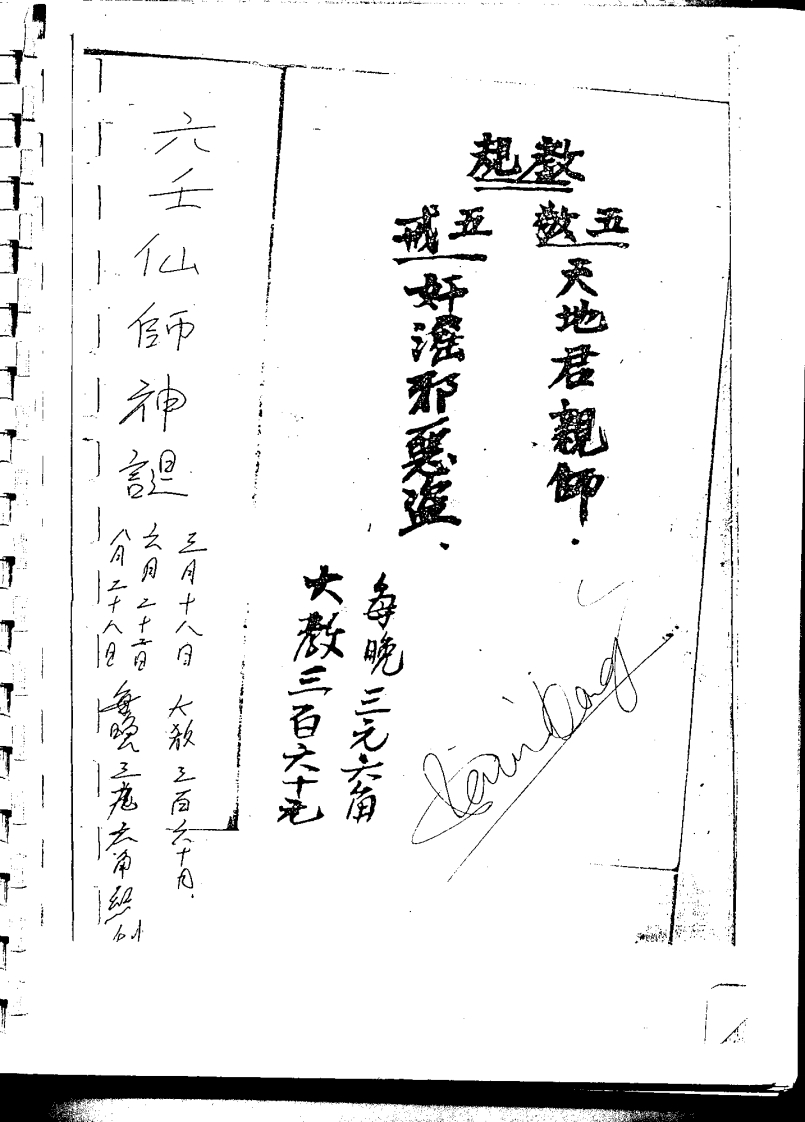 教規
五敬
天地君親師.
五戒
奸淫邪惡盜.
每晚三元六角
大教三百六十元
六壬仙師神誕
三月十八日 大教三百六十月.
六月二十二日
八月二十八日 每晚三元六角照例